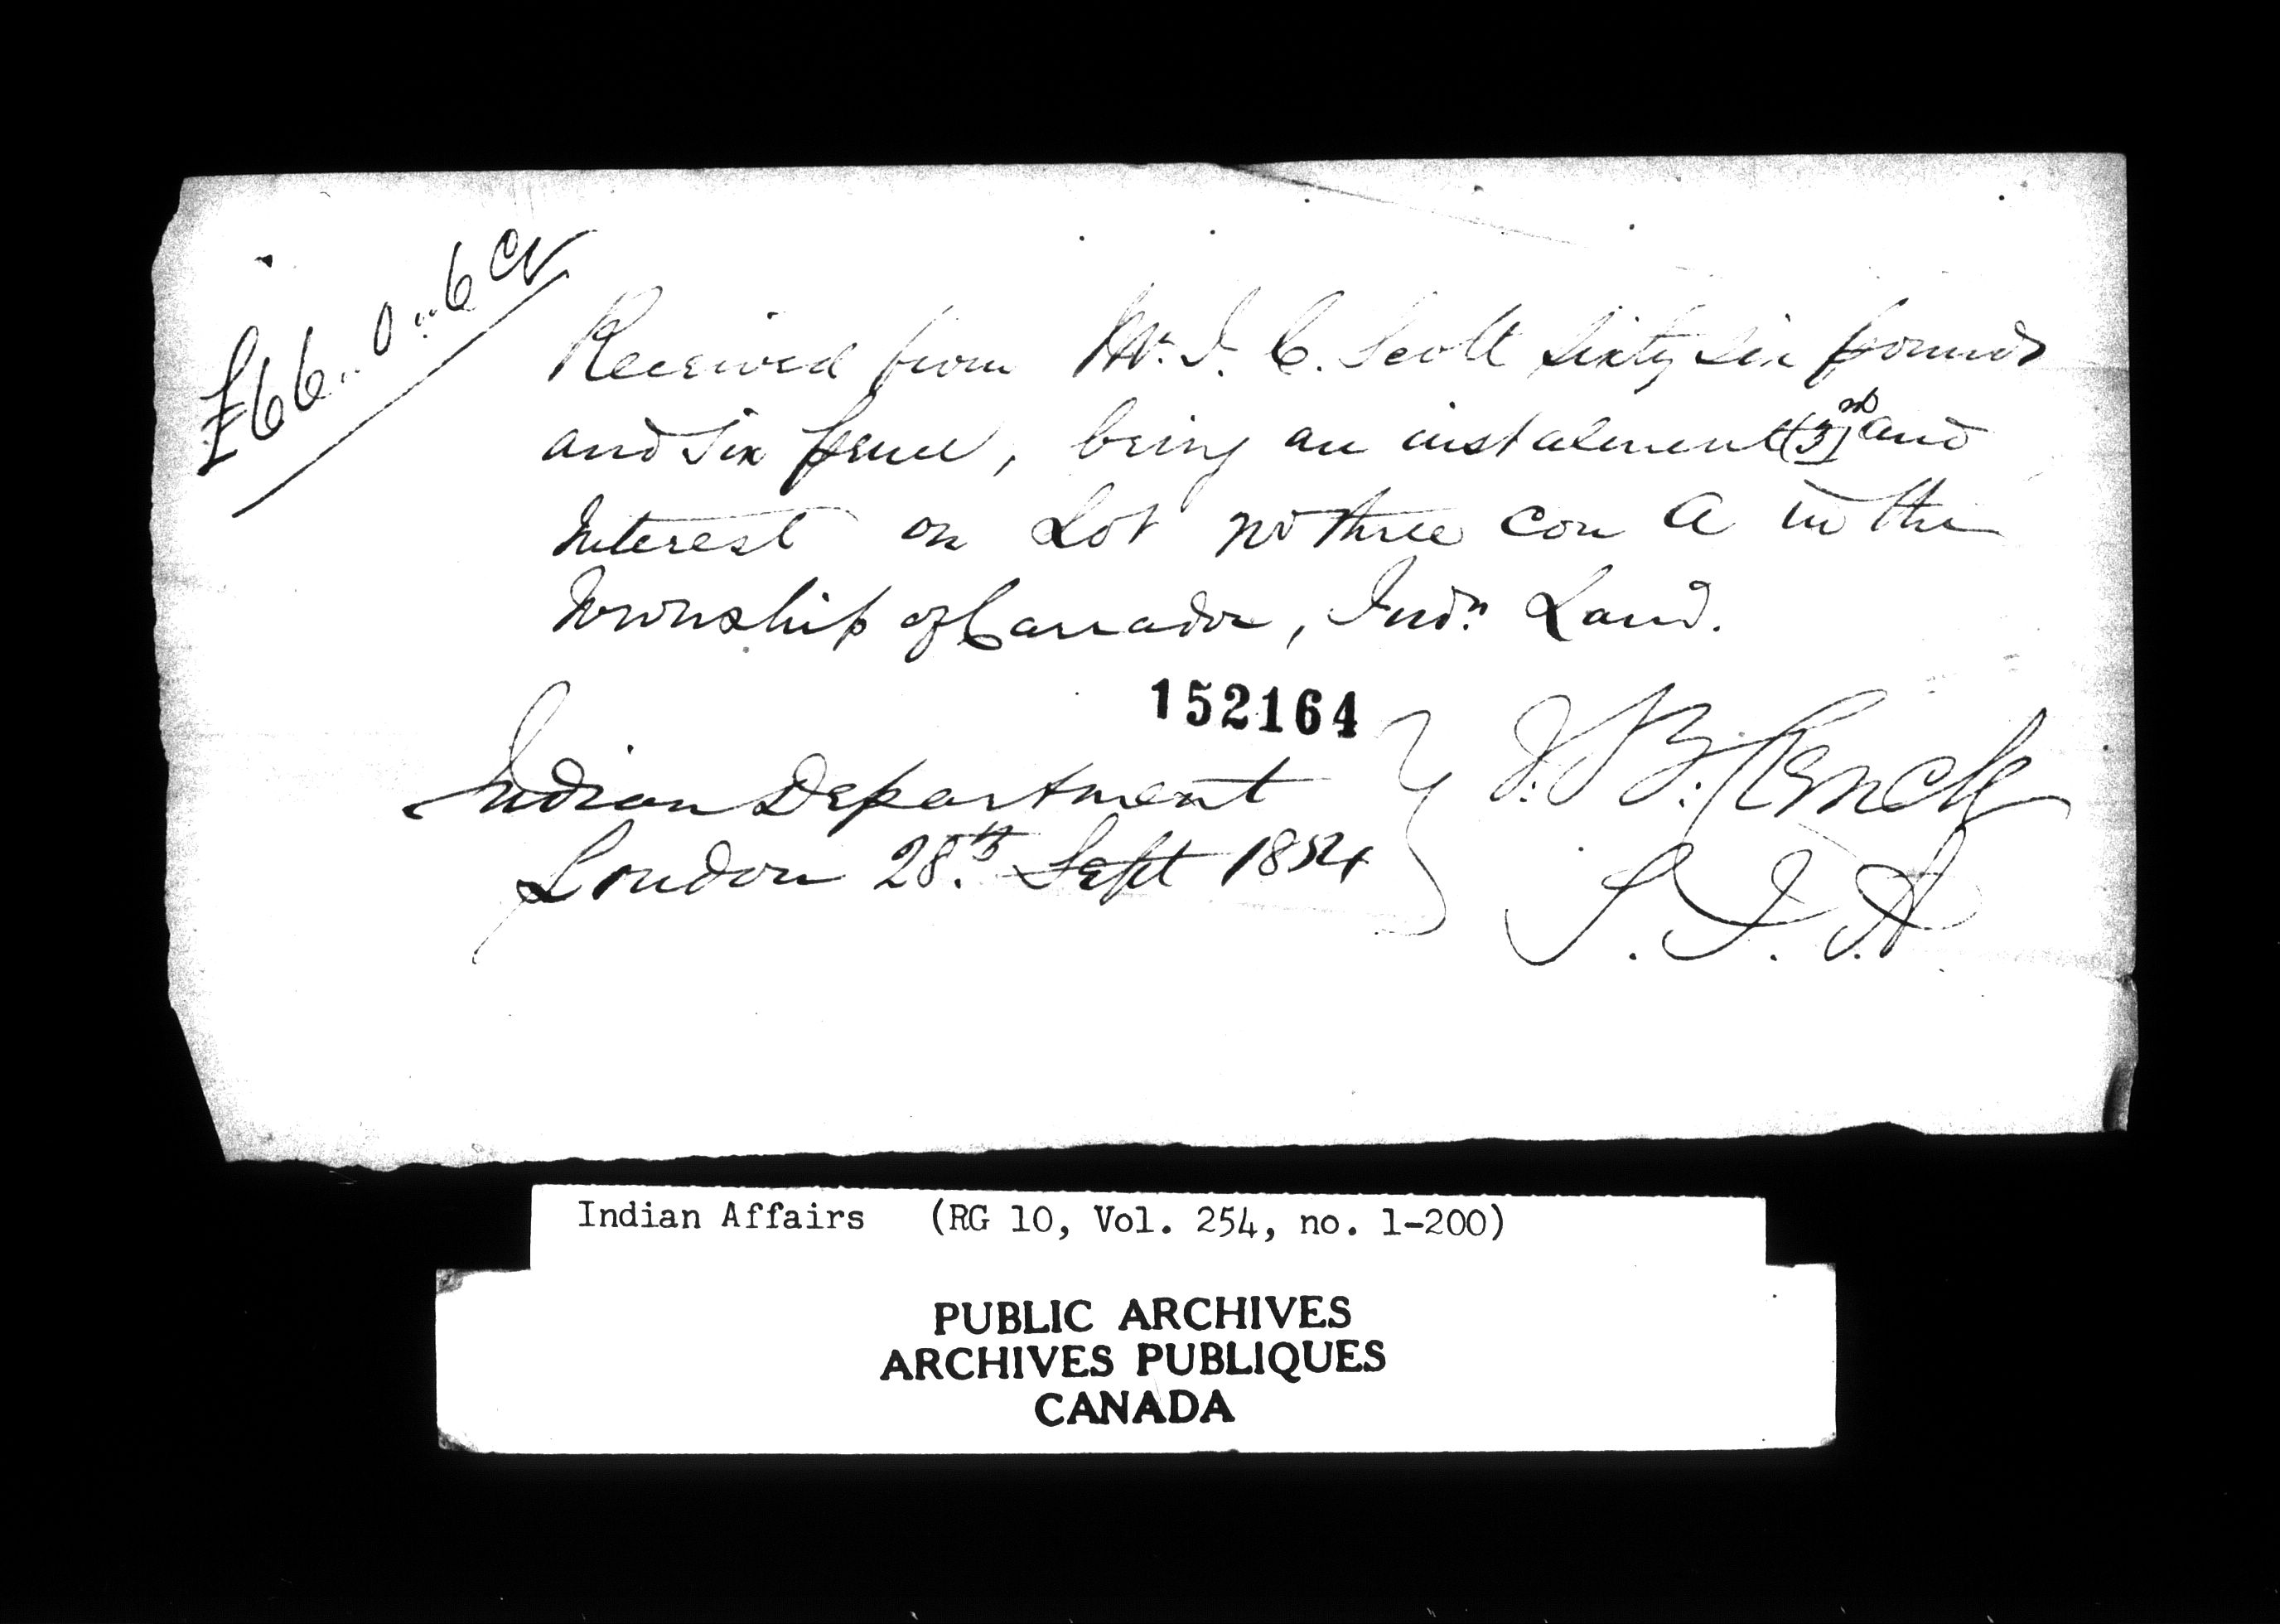 £66 " 0 " 6 Cy
Received from Mr. J. C. Scott Sixty Six pounds
and Six pence, being an instalment (3)rd and
Interest on Lot No three Con A in the
Township of Carradoc, Indn. Land.
152164
Indian Department
London 28th. Sept 1854
J. B. Clench
S. I. A.
Indian Affairs (RG 10, Vol. 254, no. 1-200)
PUBLIC ARCHIVES
ARCHIVES PUBLIQUES
CANADA